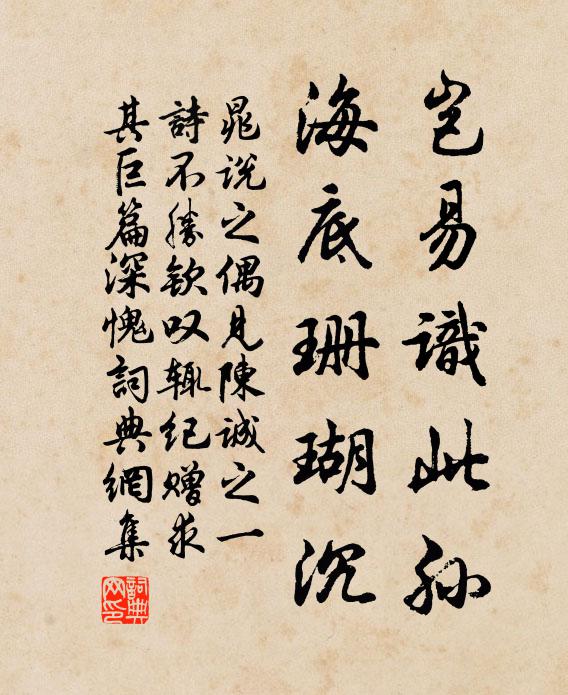 岂易識此孙
海底珊瑚沉
晁说之偶見陳诚之一
詩不勝欽叹辄纪赠求
其巨篇深愧詞典網集
詞典
网印